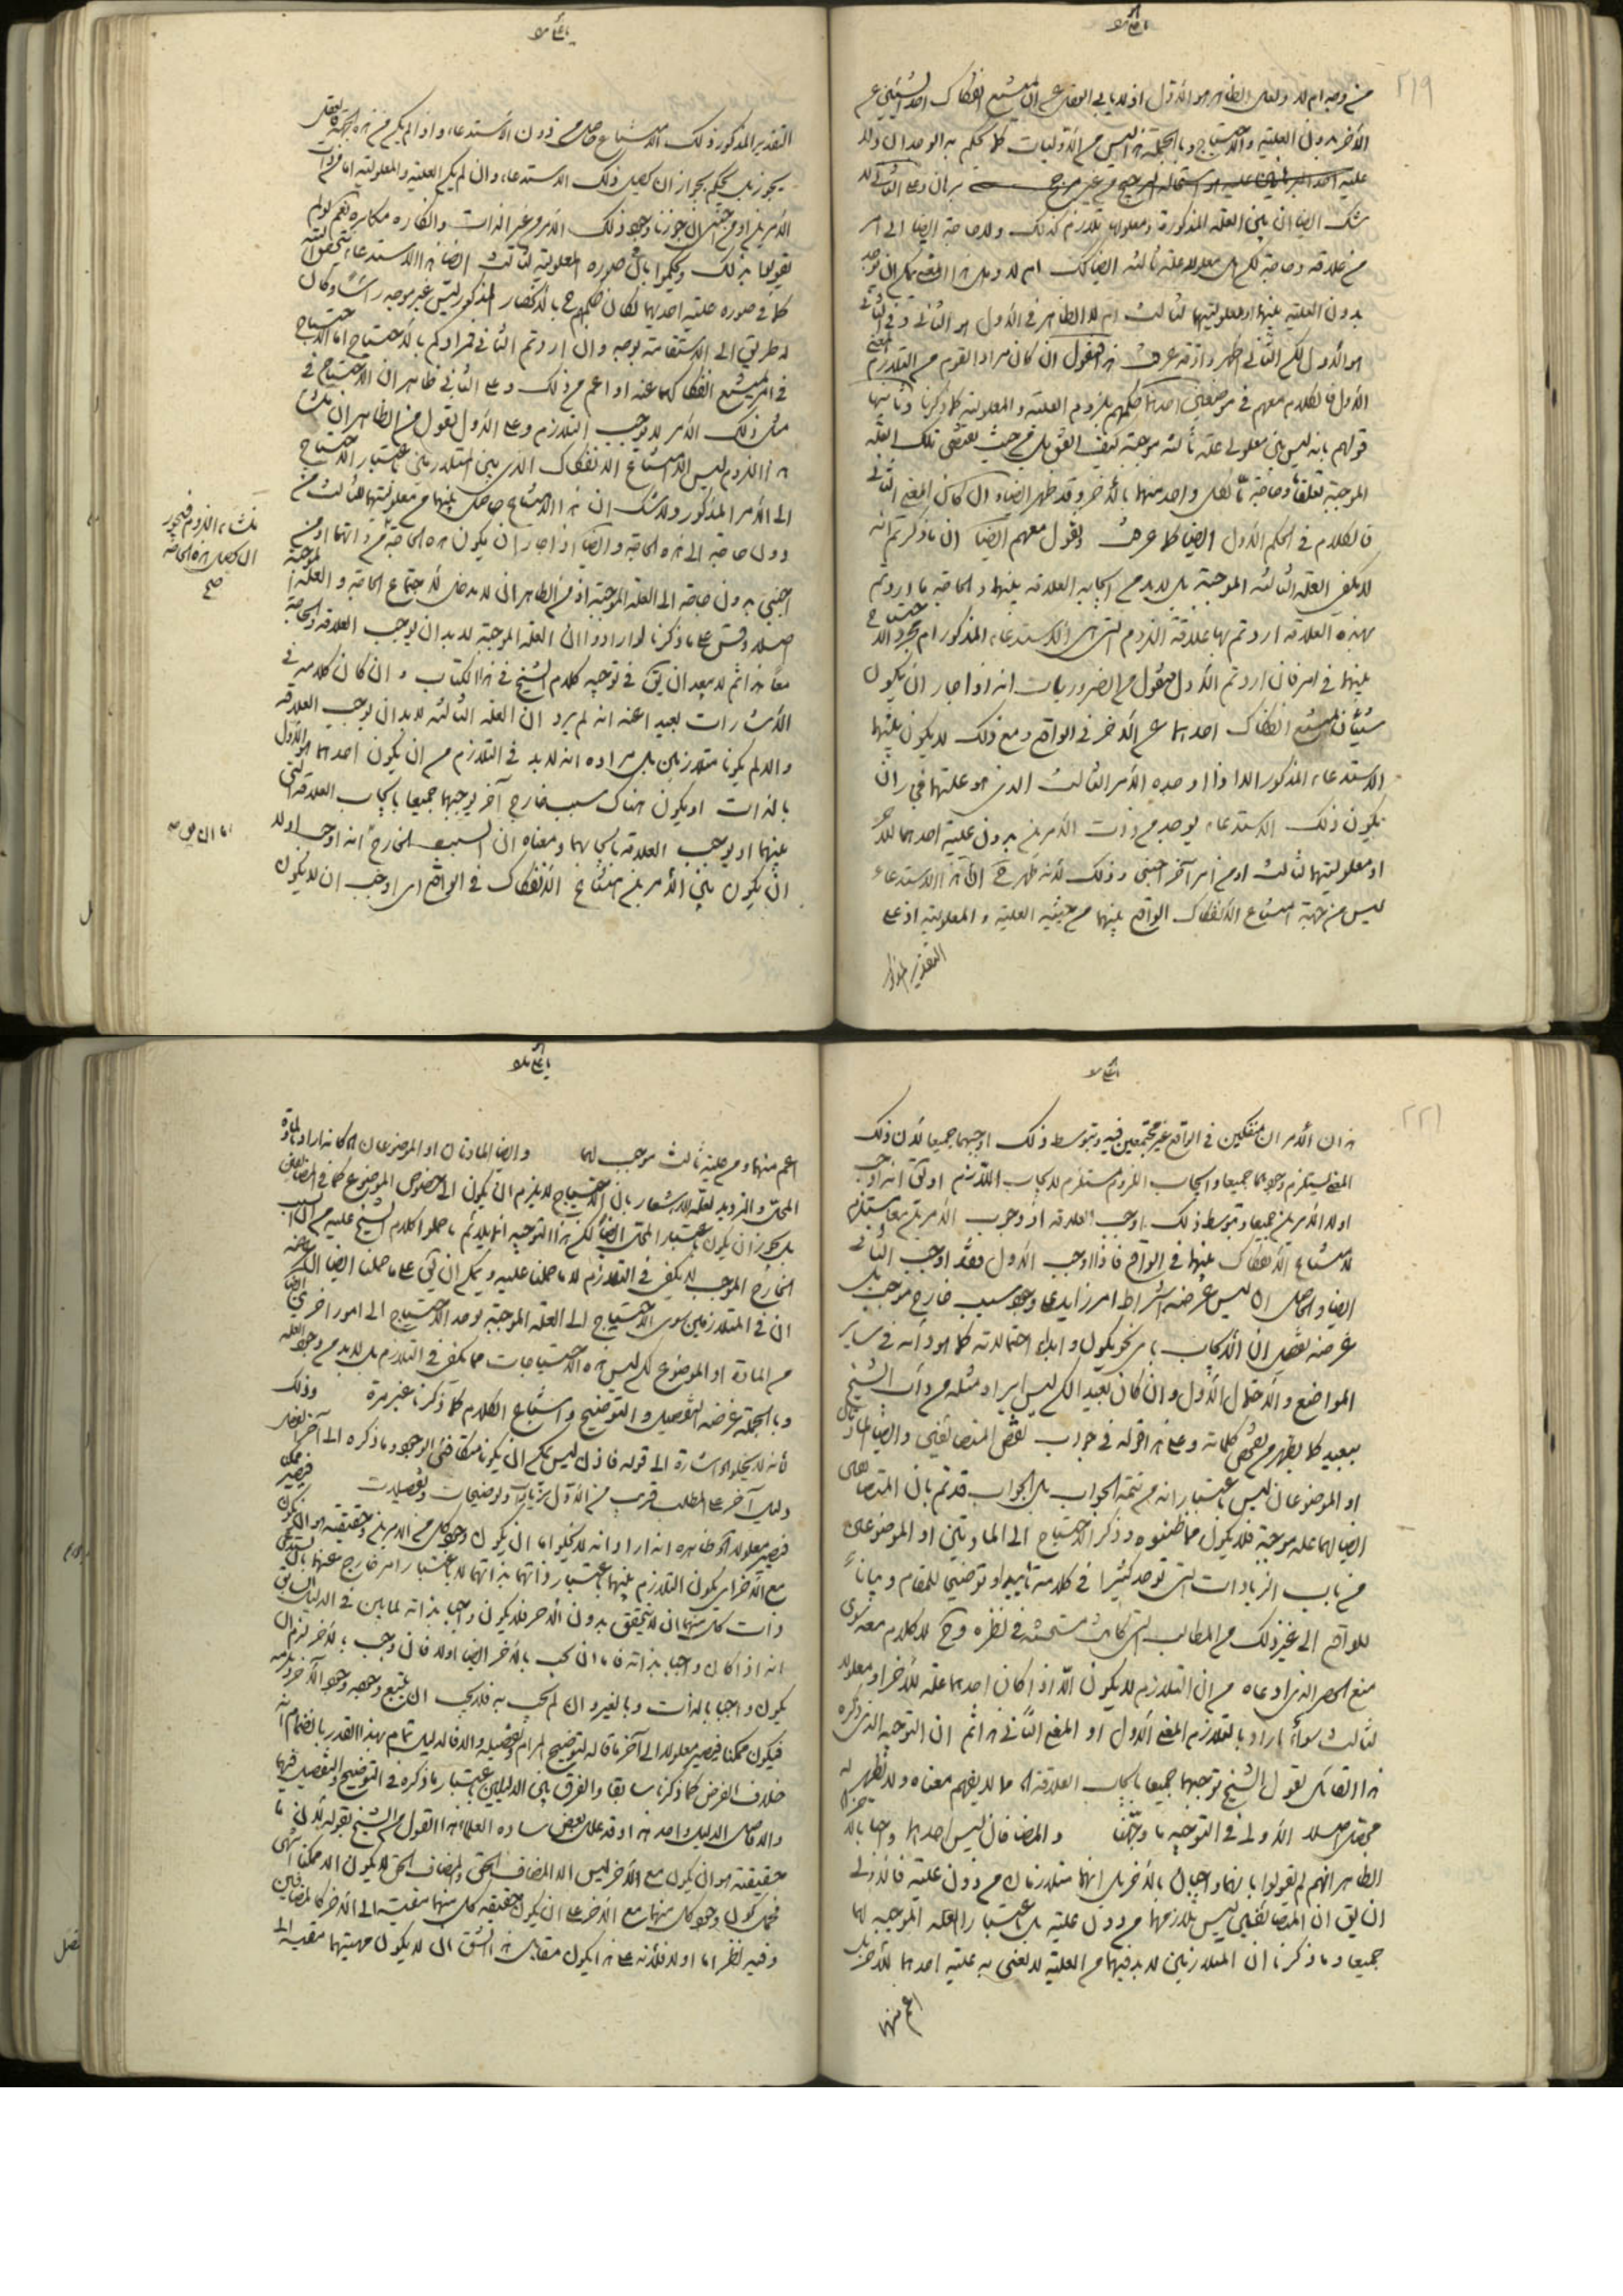 ٢١٩
من وجه ام لا ولعل الظاهر هو الأول اذ لا يأبى العقل عن ان يمتنع انفكاك احد الشيئين عن
الآخر بدون العلية والاحتياج وبالجملة هذا ليس من الأوليات كما يحكم به الوجدان ولا
برهان وعلى الثاني لا
شك ايضا ان بين العلة المذكورة ومعلولها تلازم كذلك ولا حاجة ايضا الى امر
من علاقة وحاجة لكل معلولا علة ثالثة ايضا كك ام لا وهل هذا المعنى يمكن ان يوجد
بدون العلية بينهما او معلوليتهما لثالث ام لا الظاهر في الأول هو الثاني وفي الثاني
هو الأول لكن الثاني اظهر واذ قد عرفت هذا فنقول ان كان مراد القوم من التلازم المعنى
الأول فالكلام معهم في موضعين احدهما حكمهم بلزوم العلية والمعلولية كما ذكرنا وثانيهما
قولهم بانه ليس بين معلولي علة ثالثة موجبة كيف اتفق بل من حيث يقتضي تلك العلة
الموجبة تعلقا وحاجة ما لكل واحد منهما بالآخر وقد ظهر ايضا وان كان المعنى الثاني
فالكلام في الحكم الأول ايضا كما عرفت ونقول معهم ايضا ان ما ذكرتم انه
لا يكفي العلة الثالثة الموجبة بل لا بد من ايجابه العلاقة بينهما والحاجة ما اردتم
بهذه العلاقة اردتم بها علاقة اللزوم التي هي الاستدعاء المذكور ام مجرد الاحتياج
بينهما في امر فان اردتم الأول فنقول من الضروريات انه اذا جاز ان يكون
شيئان يمتنع انفكاك احدهما عن الآخر في الواقع ومع ذلك لا يكون بينهما
الاستدعاء المذكور الا اذا اوجده الأمر الثالث الذي هو علتهما فيجوز ان
يكون ذلك الاستدعاء يوجد من ذات الأمرين بدون علية احدهما للآخر
او معلوليتهما لثالث او من امر آخر اجنبي وذلك لأنه ظهر ح ان هذا الاستدعاء
ليس من جهة امتناع الانفكاك الواقع بينهما من حيثية العلية والمعلولية اذ على
التقدير المذكور
التقدير المذكور ذلك الامتناع حاصل من دون الاستدعاء واذا لم يكن من هذه الجهة فالعقل
يجوز بل يحكم بجواز ان يحصل ذلك الاستدعاء وان لم يكن العلية والمعلولية اما من ذات
الأمرين او من اجنبي ان جوزنا وجود ذلك الأمر من غير الذات وانكاره مكابرة نعم لو لم
يقولوا بذلك وحكموا بان في صورة المعلولية لثالث ايضا هذا الاستدعاء يتحقق البتة
كما في صورة علية احدهما لكان حكمهم ح بالانحصار المذكور ليس غير موجه رأسا وكان
له طريق الى الاستقامة بوجه وان اردتم الثاني فمرادكم بالاحتياج اما الاحتياج
في امر يمتنع انفكاكهما عنه او اعم من ذلك وعلى الثاني ظاهر ان الاحتياج في
مثل ذلك الأمر لا يوجب التلازم وعلى الأول نقول من الظاهر ان منشأ
هذا اللزوم ليس الا امتناع الانفكاك الذي بين المتلازمين باعتبار الاحتياج
الى الأمر المذكور ولا شك ان هذا الامتناع حاصل بينهما من معلوليتهما لثالث من
دون حاجة الى هذه الحاجة وايضا اذا جاز ان يكون هذه الحاجة من ذاتهما او من
اجنبي بدون حاجة الى العلة الموجبة اذ من الظاهر ان لا مدخل لاجتماع الحاجة والعلة الموجبة
اصلا وقس على ما ذكرنا لو ارادوا ان العلة الموجبة لا بد ان يوجب العلاقة والحاجة
معا هذا ثم لا يبعد ان يق في توجيه كلام الشيخ في هذا الكتاب وان كان كلامه في
الاشارات بعيدا عنه انه لم يرد ان العلة الثالثة لا بد ان يوجب العلاقة
والا لم يكونا متلازمين بل مراده انه لا بد في التلازم من ان يكون احدهما هو الأول
بالذات او يكون هناك سبب خارج آخر يوجبهما جميعا بايجاب العلاقة التي
بينهما او يوجب العلاقة بايجابهما ومعناه ان السبب الخارج انه اوجب اولا
ان يكون بين الأمرين امتناع الانفكاك في الواقع اي اوجب ان لا يكون
منشأ هذا اللزوم فيجوز
ان يحصل هذه الحاجة
صح
٢٢١
هذان الأمران منفكين في الواقع غير مجتمعين فيه وبتوسط ذلك اوجبهما جميعا لأن ذلك
المعنى يستلزم وجودهما جميعا وايجاب الملزوم مستلزم لايجاب اللازم او يق انه اوجب
اولا الأمرين جميعا وبتوسط ذلك اوجب العلاقة اذ وجوب الأمرين معا يستلزم
لامتناع الانفكاك بينهما في الواقع فاذا اوجب الأول فقد اوجب الثاني
ايضا والحاصل ان ليس غرضه اشتراط امر زايد على وجود سبب خارج موجب بل
غرضه تفصيل ان الايجاب باي نحو يكون وابداء احتمالاته كما هو دأبه في ساير
المواضع والاحتمال الأول وان كان بعيدا لكن ليس ايراد مثله من دأب الشيخ
ببعيد كما يظهر من تصفح كلماته وعلى هذا قوله في جواب نقض المتضائفين وايضا المادتان
او الموضوعان ليس باعتبار انه من تتمة الجواب بل الجواب قد تم بان المتضايفين
ايضا لهما علة موجبة فلا يكون مما ظننوه وذكر الاحتياج الى المادتين او الموضوعين
من باب الزيادات التي توجد كثيرا في كلامه تأييدا وتوضيحا للمقام وبيانا
للواقع الى غير ذلك من المطالب التي كانت مستحسنة في نظره وح لا كلام معه سوى
منع الحصر الذي ادعاه من ان التلازم لا يكون الا اذا كان احدهما علة للآخر او معلولا
لثالث سواء اراد بالتلازم المعنى الأول او المعنى الثاني هذا ثم ان التوجيه الذي ذكره
هذا القائل لقول الشيخ يوجبهما جميعا بايجاب العلاقة مما لا يفهم معناه ولا يظهر له
محصل اصلا الأولى في التوجيه ما وجهنا والمضافان ليس احدهما واجبا بالآخر
الظاهر انهم لم يقولوا بانهما واجبان بالآخر بل انهما متلازمان من دون علية فالأولى
ان يق ان المتضائفين ليس تلازمهما من دون علية بل باعتبار العلة الموجبة لهما
جميعا وما ذكرنا ان المتلازمين لا بد فيهما من العلية لا نعني به علية احدهما للآخر بل
اعم منهما
اعم منهما ومن علية ثالث موجب لهما وايضا المادتان او الموضوعان كانه اراد بالمادة
المحل والترديد لعله للاشعار بان الاحتياج لا يلزم ان يكون الى خصوص الموضوع كما في المتضائفين
بل يجوز ان يكون باعتبار المحل ايضا لكن هذا التوجيه لا يلائم ما حملوا كلام الشيخ عليه من ان السبب
الخارج الموجب لا يكفي في التلازم لا ما حملنا عليه ويمكن ان يق على ما حملنا ايضا ان غرضه
ان في المتلازمين سوى الاحتياج الى العلة الموجبة يوجد الاحتياج الى امور اخرى ايضا
من المادة او الموضوع لكن ليس هذه الاحتياجات مما يكفي في التلازم بل لا بد من وجود العلة
وبالجملة غرضه التفصيل والتوضيح واشباع الكلام كما ذكرنا غير مرة وذلك
لأنه لا يخلو اشارة الى قوله فاذن ليس يمكن ان يكونا متكافئي الوجود وما ذكره الى آخر الفصل
دليل آخر على المطلب قريب من الأول بزيادات وتوضيحات وتفصيلات فيصير ممكن
فيصير معلولا ظاهره انه اراد انه لا يخلو اما ان يكون وجود كل من الأمرين وحقيقته هو ان يكون
مع الآخر اي يكون التلازم بينهما باعتبار ذاتهما بذاتهما لا باعتبار امر خارج عنهما بان يستدعي
ذات كل منهما ان لا يتحقق بدون الآخر فلا يكون واجبا بذاته لما بين في الدليل السابق
انه اذا كان واجبا بذاته فاما ان يجب بالآخر ايضا اولا فان وجب بالآخر لزم ان
يكون واجبا بالذات وبالغير وان لم يجب به فلا يجب ان يتبع وجوده وجود الآخر ويلزمه
فيكون ممكنا فيصير معلولا الى آخر ما قاله لتوضيح المرام وتفصيله والا فالدليل تمام بهذا القدر بانضمام انه
خلاف الفرض كما ذكرنا سابقا والفرق بين الدليلين باعتبار ما ذكره في التوضيح والتفصيل فيهما
والا فاصل الدليل واحد هذا وقد علل بعض سادة العلماء هذا القول من الشيخ بقوله لأن ما
حقيقته هو ان يكون مع الآخر ليس الا المضاف الحقيقي والمضاف الحقيقي لا يكون الا ممكنا انتهى
فحمل كون وجود كل منهما مع الآخر على ان يكون حقيقة كل منهما مقيسة الى الآخر كالمتضايفين
وفيه نظر اما اولا فلأنه على هذا يكون مقابل هذا الشق ان لا يكون مهيتهما مقيسة الى